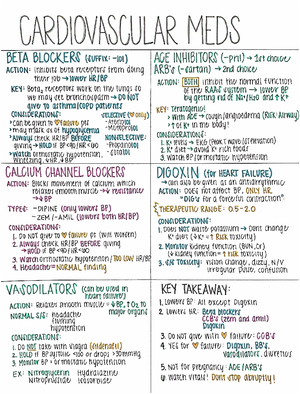 CARDIOVASCULAR MEDS
BETA BLOCKERS (SUFFIX: -lol)
ACTION: Inhibits beta receptors from doing
their job → lower HR/BP
KEY: Beta2 receptors work on the lungs so
we may see bronchospasm → DO NOT
give to asthma/COPD patients
CONSIDERATIONS:
• Can be given to failure per
• May mask s/s of hypoglycemia
• Always check HR/BP BEFORE
giving → HOLD if BP <90/ HR <60
• Watch orthostatic hypotension,
wheezing, ↓HR ↓BP
SELECTIVE ( only)
- Atenolol
- Metoprolol
NONSELECTIVE:
- Propranolol
- Sotalol
ACE INHIBITORS (-pril) → 1st choice
ARB's (-sartan) → 2nd choice
ACTION: BOTH inhibit the normal function
of the RAAS system → lower BP
by getting rid of Na+/H2O and ↑K+
KEY: Teratogenic!
• With ACE → cough/angioedema (RISK: Airway)
• ↑ of K+ in the body!
CONSIDERATIONS:
1. K+ levels → EKG (Peak T waves/elevation)
2. K+ diet → avoid K+ rich food
3. Watch BP (orthostatic) hypotension
CALCIUM CHANNEL BLOCKERS
ACTION: Block movement of calcium, which
relaxes smooth muscle → ↓ resistance
→ ↓BP
TYPES: - DIPINE (only lowers BP)
- ZEM / AMIL (lowers both HR/BP)
CONSIDERATIONS:
1. Do not give to failure pt (will worsen)
2. Always check HR/BP before giving
→ HOLD if BP <90 / HR <60
3. Watch orthostatic hypotension / too low HR/BP
4. Headache = NORMAL finding
DIGOXIN (for HEART FAILURE)
→ can also be given as an antiarrhythmic
ACTION: Does not affect BP, ONLY HR
"DIG's for a forceful contraction"
THERAPEUTIC RANGE: 0.5-2.0
CONSIDERATIONS:
1. Does not waste potassium → DONT change
K+ diet (↓K+ = ↑ Risk toxicity)
2. Monitor kidney function (BUN, Cr)
(↓ kidney function = ↑ risk toxicity)
3. S/S TOXICITY: Vision changes, dizzy, N/V
irregular pulse, confusion
VASODILATORS (can be used in
heart failure)
ACTION: Relaxes smooth muscle → ↓BP, ↑O2 to
major organs
NORMAL S/S: headache
flushing
hypotension
CONSIDERATIONS:
1. Do NOT take with Viagra (sildenafil)
2. HOLD if BP systolic <100 or drops >30mmHg
3. Monitor BP → orthostatic hypotension
EX: Nitroglycerin Hydralazine
Nitroprusside Isosorbide
KEY TAKEAWAY:
1. LOWERS BP: All except Digoxin
2. LOWERS HR: Beta blockers
CCB's (zem and amil)
Digoxin
3. Do not give with failure: CCB's
4. YES for failure: Digoxin, BB's,
Vasodilators, diuretics
5. Not for pregnancy: ACE/ARB's
6. Watch vitals! Don't stop abruptly!